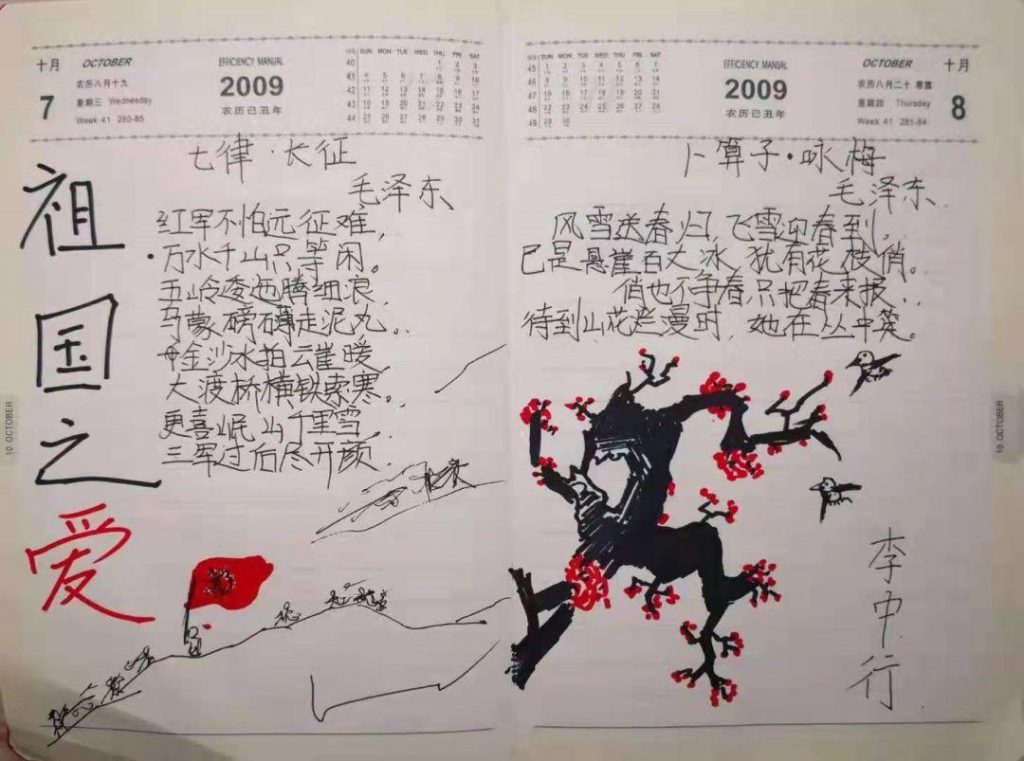 十月
7
OCTOBER
农历八月十九
星期三 Wednesday
Week 41 280-85
EFFICIENCY MANUAL
2009
农历己丑年
SUN MON TUE WED THU FRI SAT
40 1 2 3
41 4 5 6 7 8 9 10
42 11 12 13 14 15 16 17
43 18 19 20 21 22 23 24
44 25 26 27 28 29 30 31
祖国之爱
七律·长征
毛泽东
红军不怕远征难,
万水千山只等闲。
五岭逶迤腾细浪
马蒙磅礴走泥丸。
金沙水拍云崖暖
大渡桥横铁索寒。
更喜岷山千里雪
三军过后尽开颜.
10 OCTOBER
SUN MON TUE WED THU FRI SAT
45 1 2 3 4 5 6 7
46 8 9 10 11 12 13 14
47 15 16 17 18 19 20 21
48 22 23 24 25 26 27 28
49 29 30
EFFICIENCY MANUAL
2009
农历己丑年
OCTOBER
农历八月二十 寒露
星期四 Thursday
Week 41 281-84
十月
8
卜算子·咏梅
毛泽东
风雪送春归,飞雪迎春到,
已是悬崖百丈冰,犹有花枝俏。
俏也不争春只把春来报..
待到山花烂漫时,她在丛中笑。
李中行
10 OCTOBER